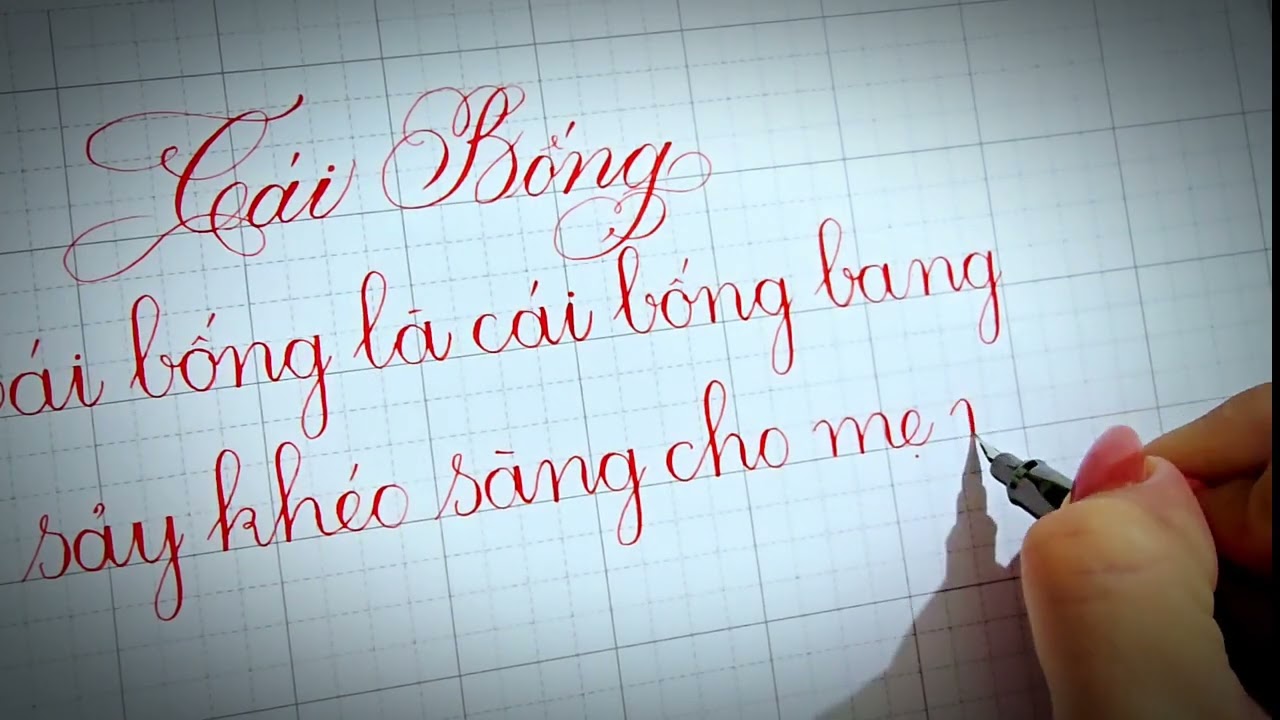 Cái Bống
cái bống là cái bống bang
sảy khéo sàng cho mẹ